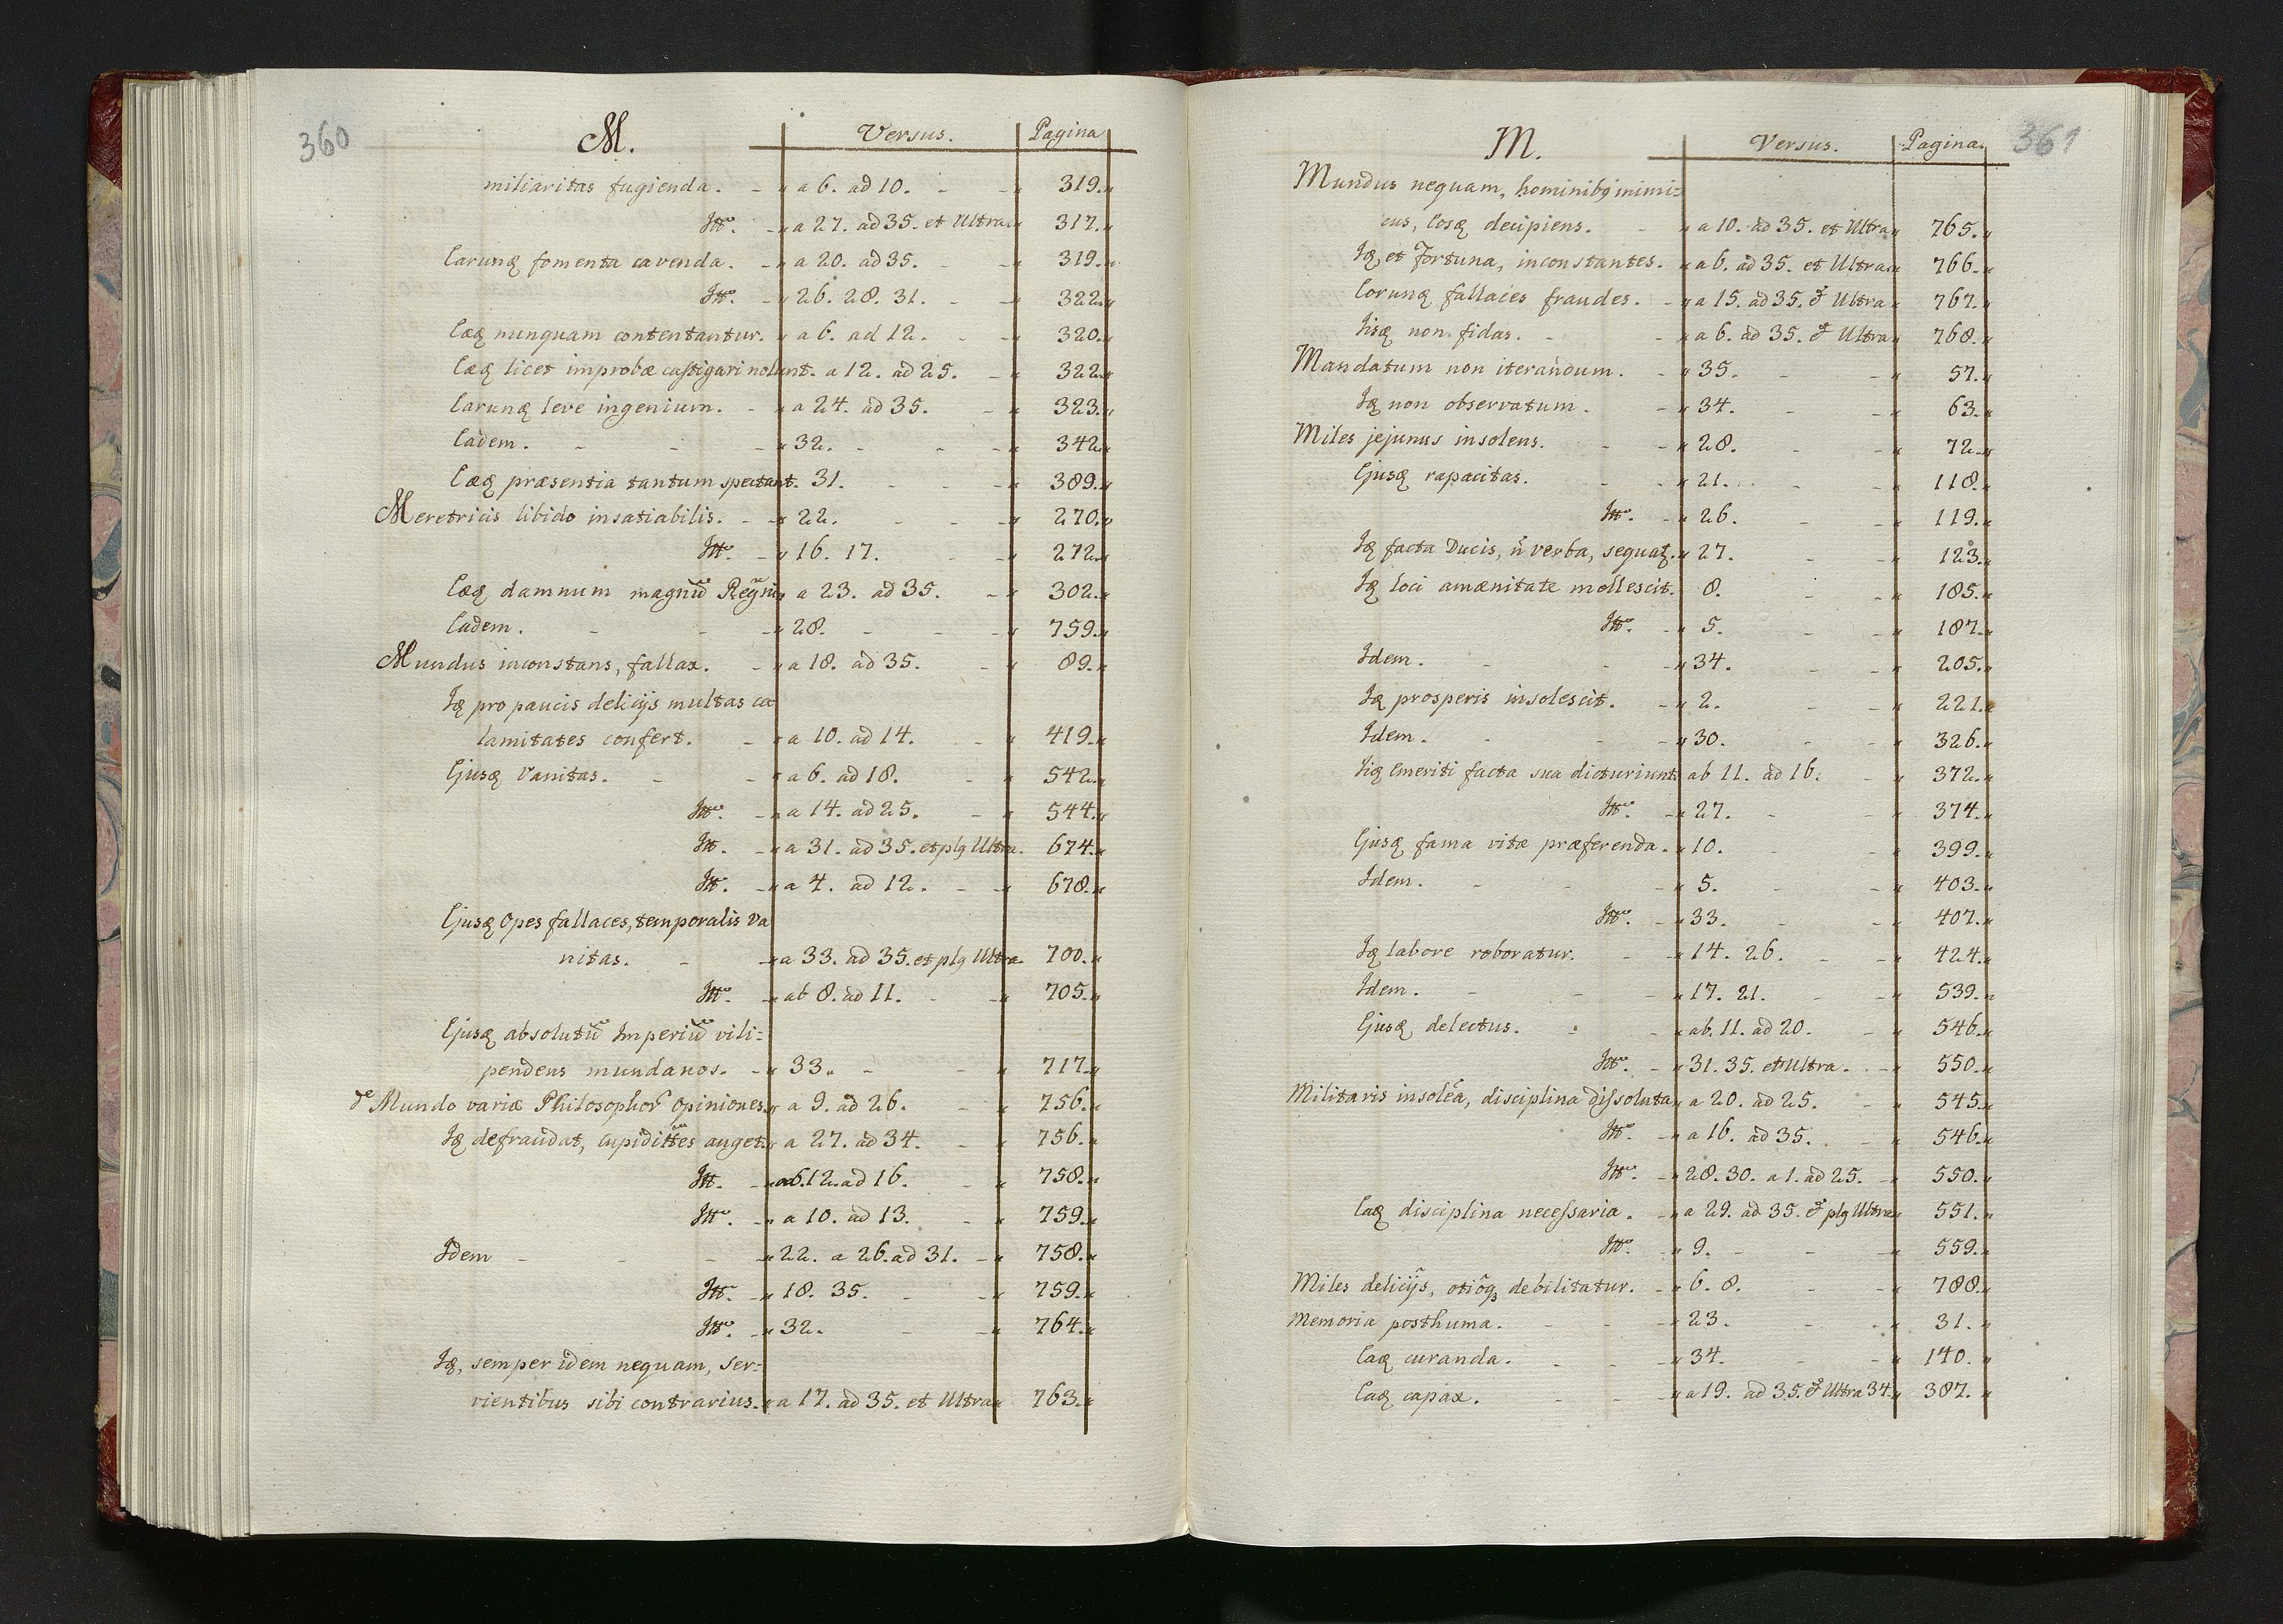 360
M. Versus. Pagina
miliaritas fugienda. a 6. ad 10. 319.
Itt. a 27. ad 35. et Ultra 317.
Earunq fomenta cavenda. a 20. ad 35. 319.
Itt. 26. 28. 31. 322.
Eæq nunquam contentantur. a 6. ad 12. 320.
Eæq licet improbæ castigari nolunt. a 12. ad 25. 322.
Earunq leve ingenium. a 24. ad 35. 323.
Eadem. 32. 342.
Eæq præsentia tantum spectant. 31. 389.
Meretricis libido insatiabilis. 22. 270.
Itt. 16. 17. 272.
Eæq damnum magnū Regni a 23. ad 35. 302.
Eadem. 28. 759.
Mundus inconstans, fallax. a 18. ad 35. 89.
Iq pro paucis delicijs multas ca
lamitates confert. a 10. ad 14. 419.
Ejusq Vanitas. a 6. ad 18. 542.
Itt. a 14. ad 25. 544.
Itt. a 31. ad 35. et plq Ultra. 674.
Itt. a 4. ad 12. 678.
Ejusq Opes fallaces, temporalis va
nitas. a 33. ad 35. et plq Ultra. 700.
Itt. ab 8. ad 11. 705.
Ejusq absolutū Imperiū vili=
pendens mundanos. 33. 717.
de Mundo variæ Philosophor opiniones. a 9. ad 26. 756.
Iq defraudat, cupidittes auget. a 27. ad 34. 756.
Itt. ab. 12. ad 16. 758.
Itt. a 10. ad 13. 759.
Idem 22. a 26. ad 31. 758.
Itt. 18. 35. 759.
Itt. 32. 764.
Iq, semper idem nequam, ser=
vientibus sibi contrarius. a 17. ad 35. et Ultra 763.
361
M. Versus. Pagina
Mundus nequam, hominibq inimi=
cus, Eosq decipiens. a 10. ad 35. et Ultra 765.
Iq et Fortuna, inconstantes. a 6. ad 35. et Ultra 766.
Eorunq fallaces fraudes. a 15. ad 35. & Ultra 767.
Iisq non fidas. a 6. ad 35. & Ultra 768.
Mandatum non iterandum. 35. 57.
Iq non observatum. 34. 63.
Miles jejunus insolens. 28. 72.
Ejusq rapacitas. 21. 118.
Itt. 26. 119.
Iq facta Ducis, ñ verba, sequat. 27. 123.
Iq loci amænitate mollescit. 8. 185.
Itt. 5. 187.
Idem. 34. 205.
Iq prosperis insolescit. 2. 221.
Idem. 30. 326.
Iiq Emeriti facta sua dicturiunt ab 11. ad 16. 372.
Itt. 27. 374.
Ejusq fama vitæ præferenda. 10. 399.
Idem. 5. 403.
Itt. 33. 407.
Iq labore roboratur. 14. 26. 424.
Idem. 17. 21. 539.
Ejusq delectus. ab. 11. ad 20. 546.
Itt. 31. 35. et Ultra. 550.
Militaris insolēa, disciplina dissoluta a 20. ad 25. 545.
Itt. a 16. ad 35. 546.
Itt. 28. 30. a 1. ad 25. 550.
Eaq disciplina necessaria. a 29. ad 35. & plq Ultra 551.
Itt. 9. 559.
Miles delicijs, otiōq debilitatur. 6. 8. 788.
Memoria posthuma. 23. 31.
Eaq curanda. 34. 140.
Eaq capax. a 19. ad 35. & Ultra 34. 387.